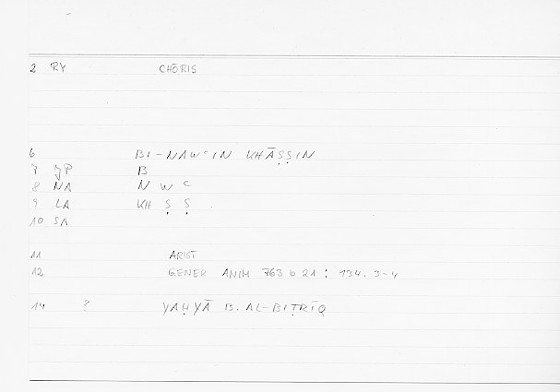 2 RY CHŌRIS
6 BI-NAWʿIN KHĀṢṢIN
7 JP B
8 NA N W ʿ
9 LA KH Ṣ Ṣ
10 SA
11 ARIST
12 GENER ANIM 763 b 21 : 134. 3-4
14 ? YAḤYĀ B. AL-BIṬRĪQ